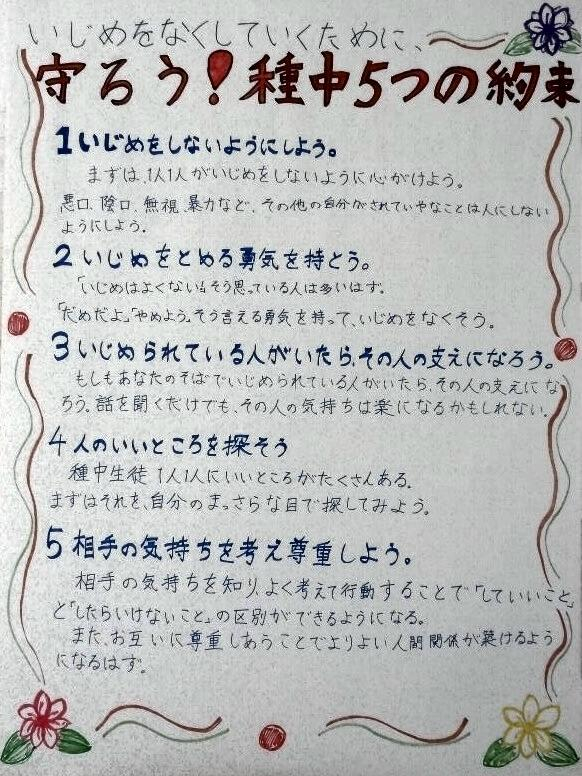 いじめをなくしていくために、
守ろう!種中5つの約束
1いじめをしないようにしよう。
まずは、1人1人がいじめをしないように心がけよう。
悪口、陰口、無視、暴力など、その他の自分がされていやなことは人にしない
ようにしよう。
2いじめをとめる勇気を持とう。
「いじめはよくない!」そう思っている人は多いはず。
「だめだよ。」「やめよう。」そう言える勇気を持って、いじめをなくそう。
3いじめられている人がいたら、その人の支えになろう。
もしもあなたのそばでいじめられている人がいたら、その人の支えにな
ろう。話を聞くだけでも、その人の気持ちは楽になるかもしれない。
4人のいいところを探そう
種中生徒1人1人にいいところがたくさんある。
まずはそれを、自分のまっさらな目で探してみよう。
5相手の気持ちを考え尊重しよう。
相手の気持ちを知り、よく考えて行動することで「していいこと」
と「したらいけないこと」の区別ができるようになる。
また、お互いに尊重しあうことでよりよい人間関係が築けるよう
になるはず。